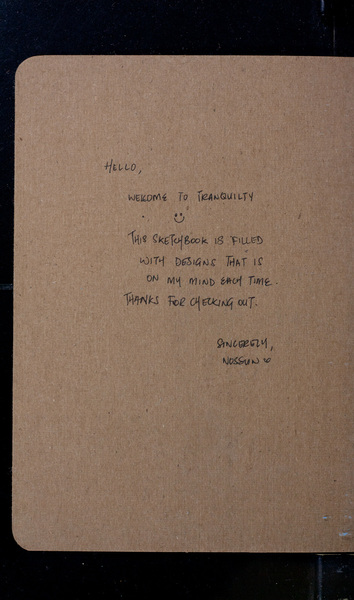 HELLO,
WELCOME TO TRANQUILTY
THIS SKETCHBOOK IS FILLED
WITH DESIGNS THAT IS
ON MY MIND EACH TIME.
THANKS FOR CHECKING OUT.
SINCERELY,